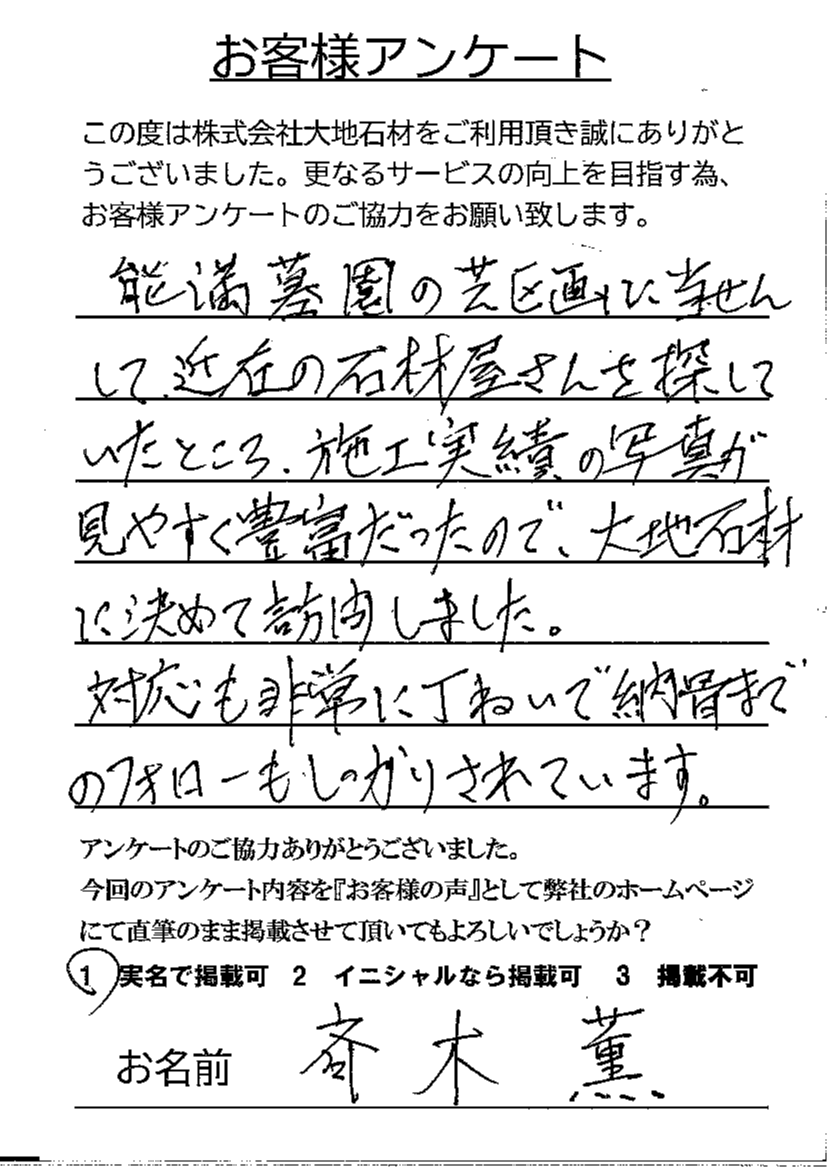 お客様アンケート
この度は株式会社大地石材をご利用頂き誠にありがと
うございました。更なるサービスの向上を目指す為、
お客様アンケートのご協力をお願い致します。
能満墓園の芝区画に当せん
して、近在の石材屋さんを探して
いたところ、施工実績の写真が
見やすく豊富だったので、大地石材
に決めて訪問しました。
対応も非常に丁ねいで納骨まで
のフォローもしっかりされています。
アンケートのご協力ありがとうございました。
今回のアンケート内容を『お客様の声』として弊社のホームページ
にて直筆のまま掲載させて頂いてもよろしいでしょうか?
1 実名で掲載可 2 イニシャルなら掲載可 3 掲載不可
お名前 斉木 薫